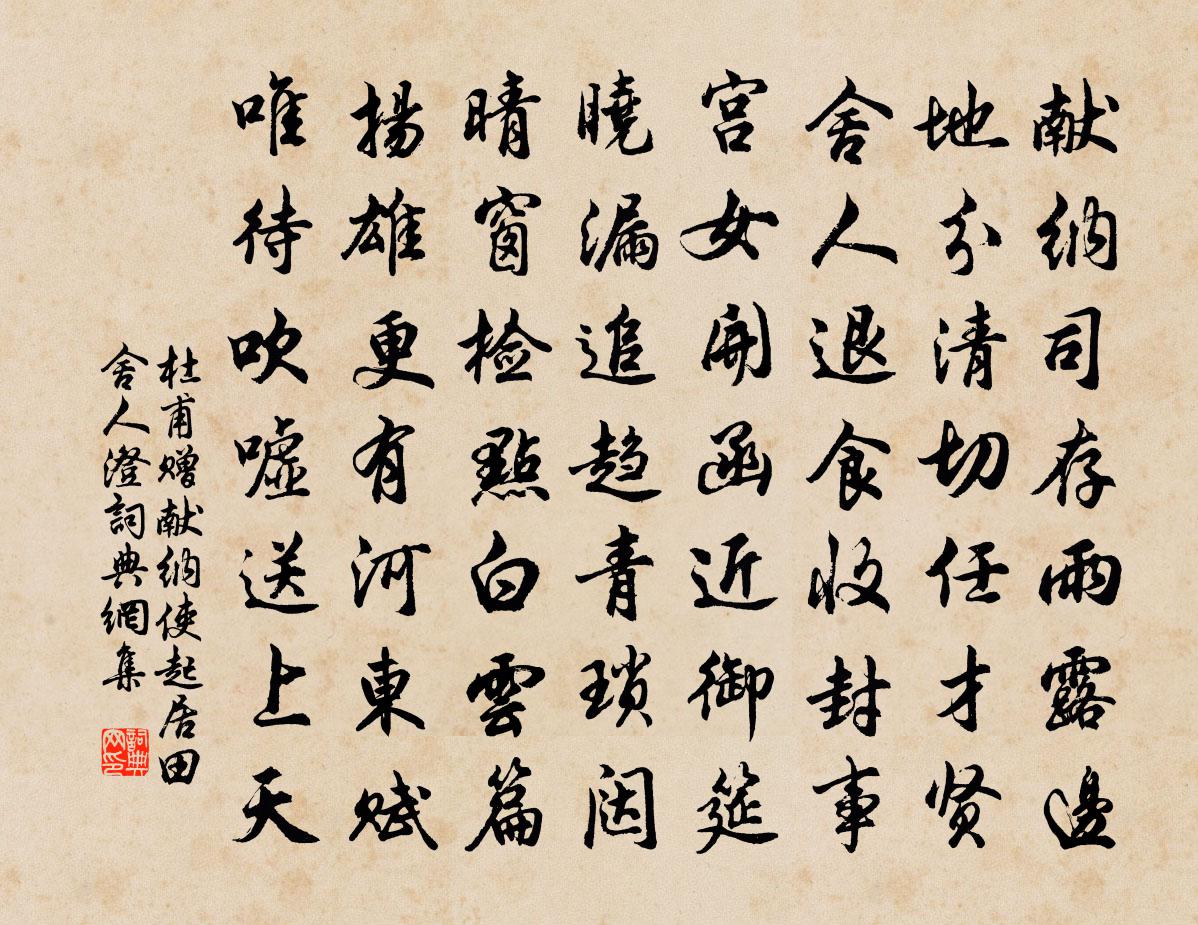 献纳司存雨露邊
地分清切任才贤
舍人退食收封事
宫女開函近御筵
曉漏追趋青琐闼
晴窗检點白雲篇
揚雄更有河東赋
唯待吹嘘送上天
杜甫赠献纳使起居田
舍人澄詞典網集
詞典
网印